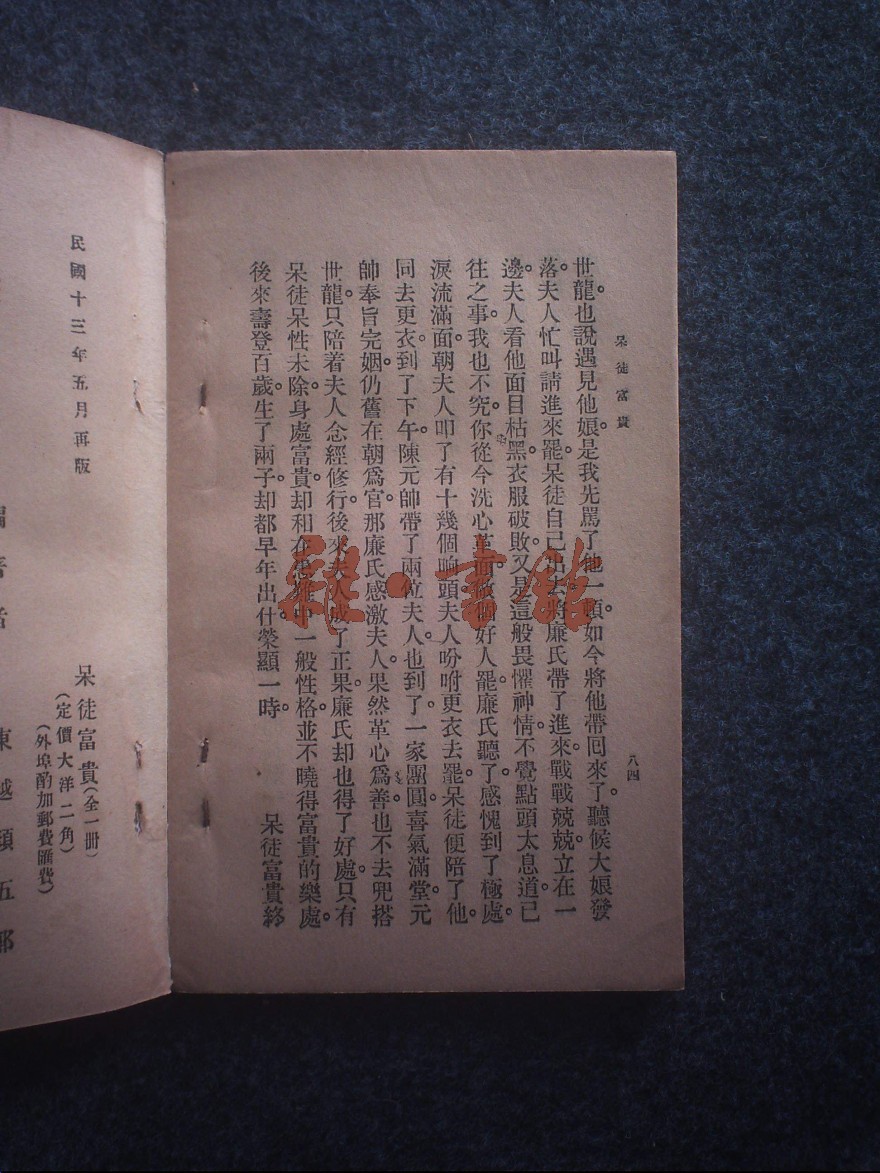 呆徒富貴
八四
世龍。也說遇見他娘。是我先罵了他一頓。如今將他帶回來了。聽候大娘發
落。夫人忙叫請進來罷。呆徒自己出去。將廉氏帶了進來。戰戰兢兢立在一
邊。夫人看他面目枯黑。衣服破敗。又是這般畏懼神情。不覺點頭太息道。已
往之事。我也不究。你從今洗心革面。做個好人罷。廉氏聽了。感愧到了極處。
淚流滿面。朝夫人叩了有十幾個响頭。夫人吩咐更衣去罷。呆徒便陪了他。
同去更衣。到了下午。陳元帥帶了兩位夫人。也到了。一家團圓。喜氣滿堂。元
帥奉旨完姻。仍舊在朝爲官。那廉氏感激夫人。果然革心爲善。也不去兜搭
世龍。只陪着夫人念經修行。後來夫人成了正果。廉氏却也得了好處。只有
呆徒呆性未除。身處富貴。却和在患難中一般性格。並不曉得富貴的樂處。
後來壽登百歲。生了兩子。却都早年出仕。榮顯一時。
呆徒富貴終
雜·書館
民國十三年五月再版
呆徒富貴(全一冊)
(定價大洋二角)
(外埠酌加郵費匯費)